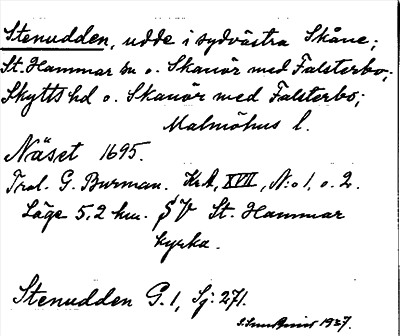 Stenudden, udde i sydvästra Skåne;
St. Hammar sn o. Skanör med Falsterbo;
Skytts hd o. Skanör med Falsterbo;
Malmöhus l.
Näset 1695.
Trol. G. Burman. Kr. A, XVII, N:o 1, o. 2.
Läge 5,2 km. SV St. Hammar
kyrka.
Stenudden G. 1, Sj: 271.
1927.